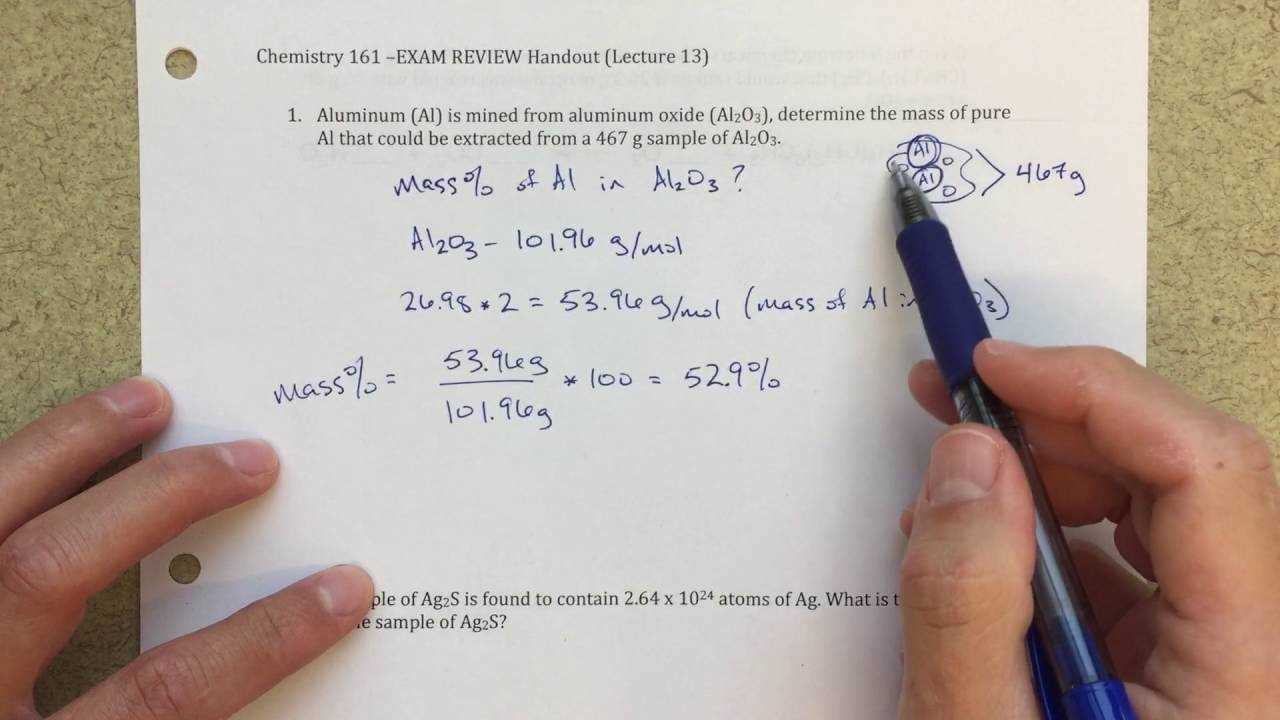 Chemistry 161 –EXAM REVIEW Handout (Lecture 13)
1. Aluminum (Al) is mined from aluminum oxide (Al₂O₃), determine the mass of pure
Al that could be extracted from a 467 g sample of Al₂O₃.
Al O
O Al O
467g
Mass% of Al in Al₂O₃?
Al₂O₃ – 101.96 g/mol
26.98 * 2 = 53.96 g/mol (mass of Al in O₃)
mass% = 53.96g / 101.96g * 100 = 52.9%
ple of Ag₂S is found to contain 2.64 x 10²⁴ atoms of Ag. What is t
sample of Ag₂S?